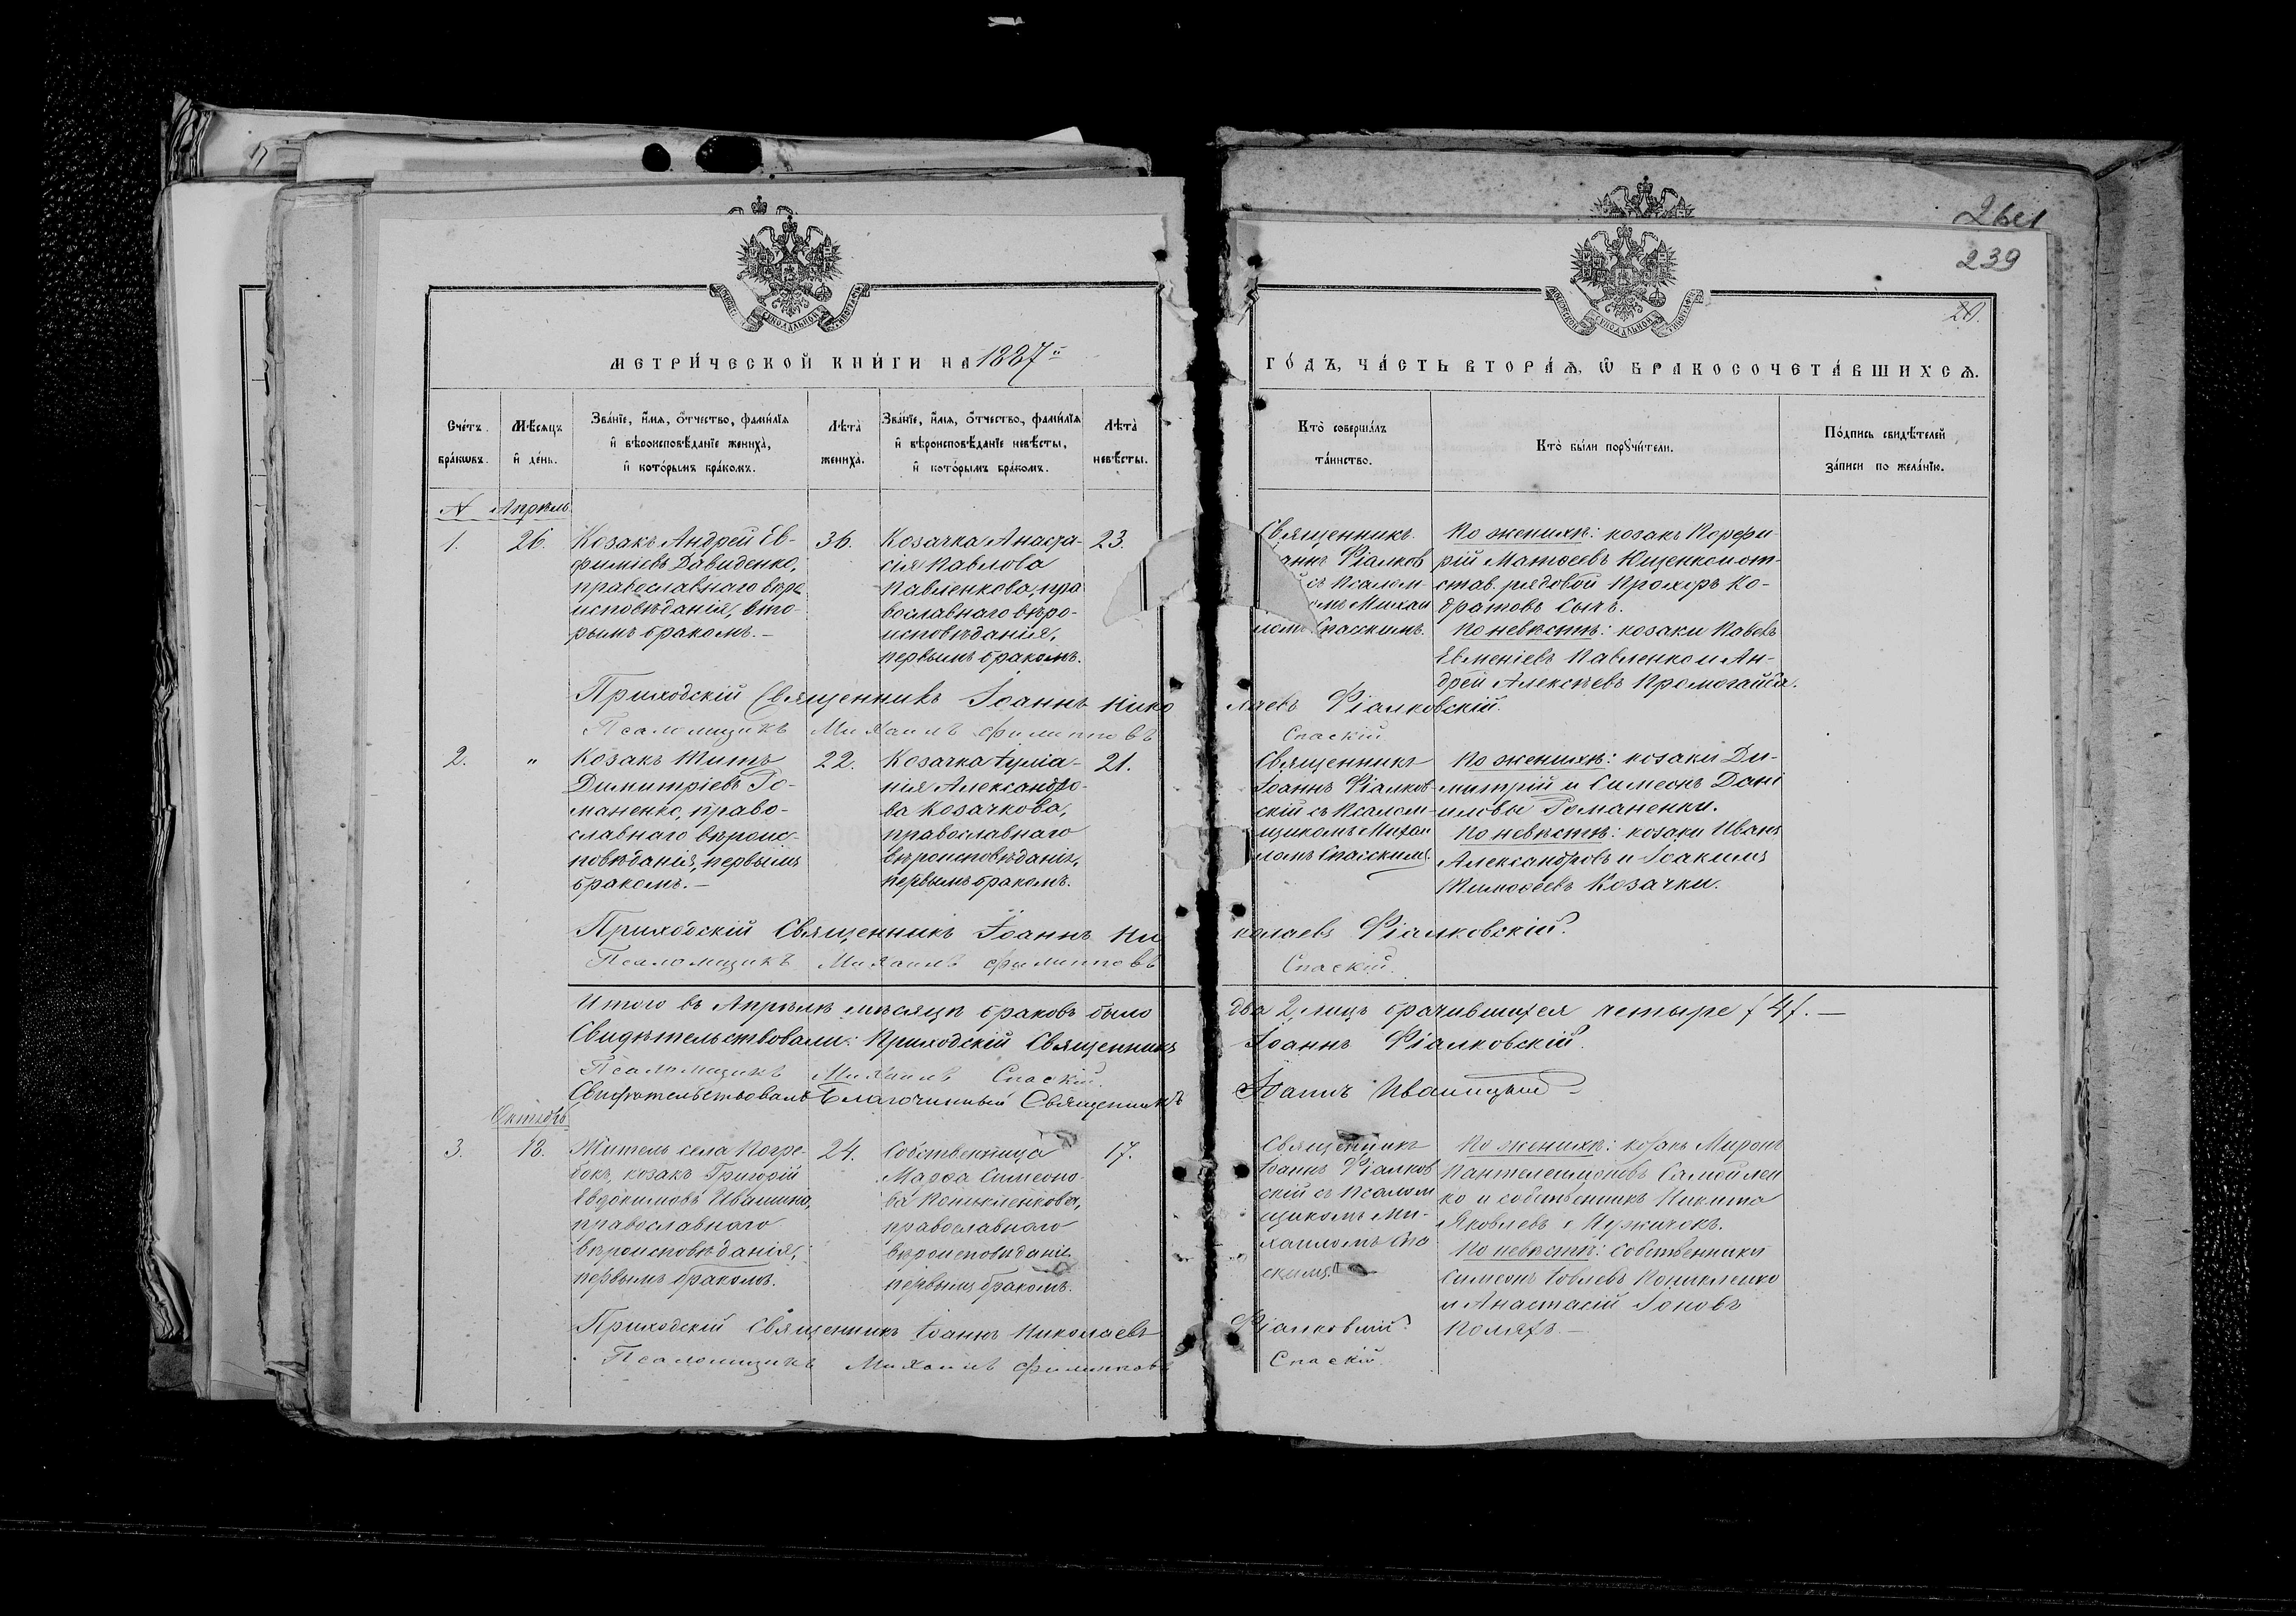 239
20.
МЕТРИ́ЧЕСКОЙ КНИ́ГИ НА 1887й
ГО́ДЪ, ЧА́СТЬ ВТОРА́Ѧ, Ѡ БРАКОСОЧЕТА́ВШИХСѦ.
Сче́тъ бра́ковъ.
Мѣ́сяцъ и де́нь.
Зва́нїе, и҆́мѧ, ѻ҆́тчество, фами́лїѧ
и҆ вѣроисповѣ́данїе жениха̀,
и҆ кото́рымъ бра́комъ.
Лѣ́та жениха̀.
Зва́нїе, и҆́мѧ, ѻ҆́тчество, фами́лїѧ
и҆ вѣроисповѣ́данїе невѣ́сты,
и҆ кото́рымъ бра́комъ.
Лѣ́та невѣ́сты.
Кто̀ соверша́лъ та́инство.
Кто̀ бы́ли порꙋчи́тели.
По́дпись свидѣ́телей
за́писи по жела́нїю.
N Апрѣль
1. 26.
Козакъ Андрей Ев-
фиміевъ Давиденко,
православнаго вѣро
исповѣданія, вто-
рымъ бракомъ.—
36.
Козачка Анаста-
сія Павлова
Павленкова, пра
вославнаго вѣро-
исповѣданія,
первымъ бракомъ.
23.
Священникъ
Фіалков
съ Псалом-
Михаи
ломъ Спасскимъ.
По женихѣ: козакъ Порфи-
рій Матѳеевъ Ющенко и от-
став. рядовой Прохоръ Ко-
дратовъ Сычъ.
По невѣстѣ: козаки Павелъ
Евменіевъ Павленко и Ан-
дрей Алексѣевъ Промогайба.
Приходскій Священникъ Іоаннъ Нико
лаевъ Фіалковскій.
Псаломщикъ Михаилъ Филипповъ
Спаскій
2. "
Козакъ Титъ
Димитріевъ Ро-
маненко, право-
славнаго вѣроис-
повѣданія, первымъ
бракомъ.—
22.
Козачка Іуліа-
нія Александро-
ва Козачкова,
православнаго
вѣроисповѣданія,
первымъ бракомъ.
21.
Священникъ
Іоаннъ Фіалков
скій съ Псалом-
щикомъ Михаи
ломъ Спасскимъ.
По женихѣ: козаки Ди-
митрій и Симеонъ Дані
иловы Романенки.
По невѣстѣ: козаки Иванъ
Александровъ и Іоакимъ
Тимоѳеевъ Козачки.
Приходскій Священникъ Іоаннъ Ни
колаевъ Фіалковскій.
Псаломщикъ Михаилъ Филипповъ
Спаскій.
Итого въ Апрѣлѣ мѣсяцѣ браковъ было
два 2, лицъ брачившихся четыре /4/.—
Свидѣтельствовали: Приходскій Священникъ
Іоаннъ Фіалковскій.
Псаломщикъ Михаилъ Спаскій.
Свидѣтельствовалъ Благочинный Священникъ
Іоаннъ Иваницкій
Октябрь
3. 18.
Житель села Погре-
бокъ, козакъ Григорій
Евдокимовъ Ивашина,
православнаго
вѣроисповѣданія,
первымъ бракомъ.
24.
Собственница
Марѳа Симеоно-
ва Поникленкова,
православнаго
вѣроисповѣданія
первымъ бракомъ.
17.
Священникъ
Іоаннъ Фіалков
скій съ Псалом
щикомъ Ми-
хаиломъ Спа
скимъ.
По женихѣ: козакъ Миронъ
Пантелеимоновъ Самойлен
ко и собственникъ Никита
Яковлевъ Мужичокъ.
По невѣстѣ: собственники
Симеонъ Іовлевъ Поникленко
и Анастасій Іоновъ
Поляхъ.—
Приходскій Священникъ Іоаннъ Николаевъ
Фіалковскій.
Псаломщикъ Михаилъ Филипповъ
Спаскій.